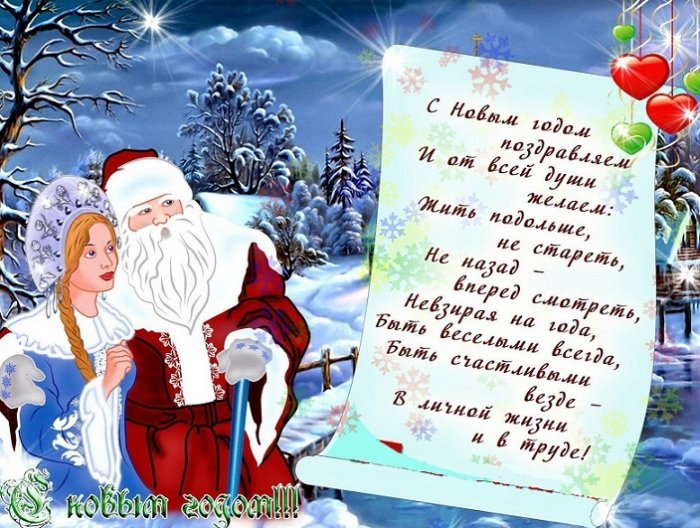 С Новым годом
поздравляем
И от всей души
желаем:
Жить подольше,
не стареть,
Не назад –
вперед смотреть,
Невзирая на года,
Быть веселыми всегда,
Быть счастливыми
везде –
В личной жизни
и в труде!
С новым годом!!!